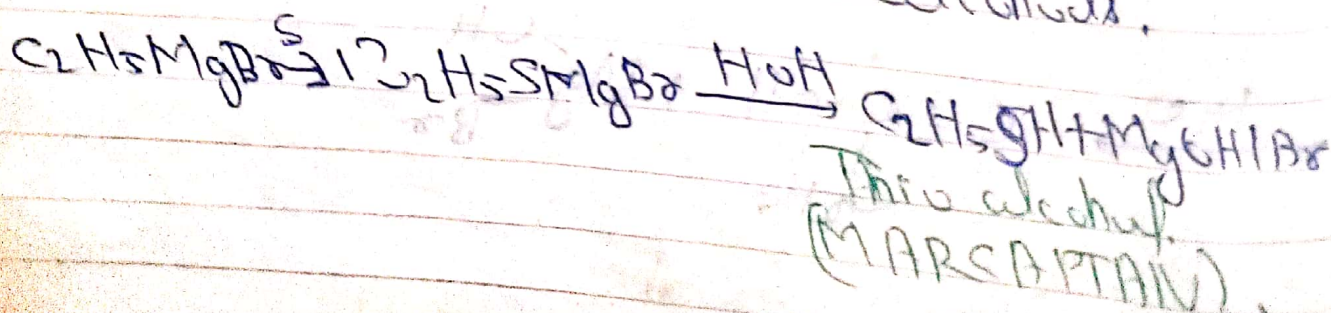 C2H5MgBr S→ C2H5SMgBr HOH→ C2H5SH+MgOHBr
Thio alcohol.
(MARCAPTAIN).